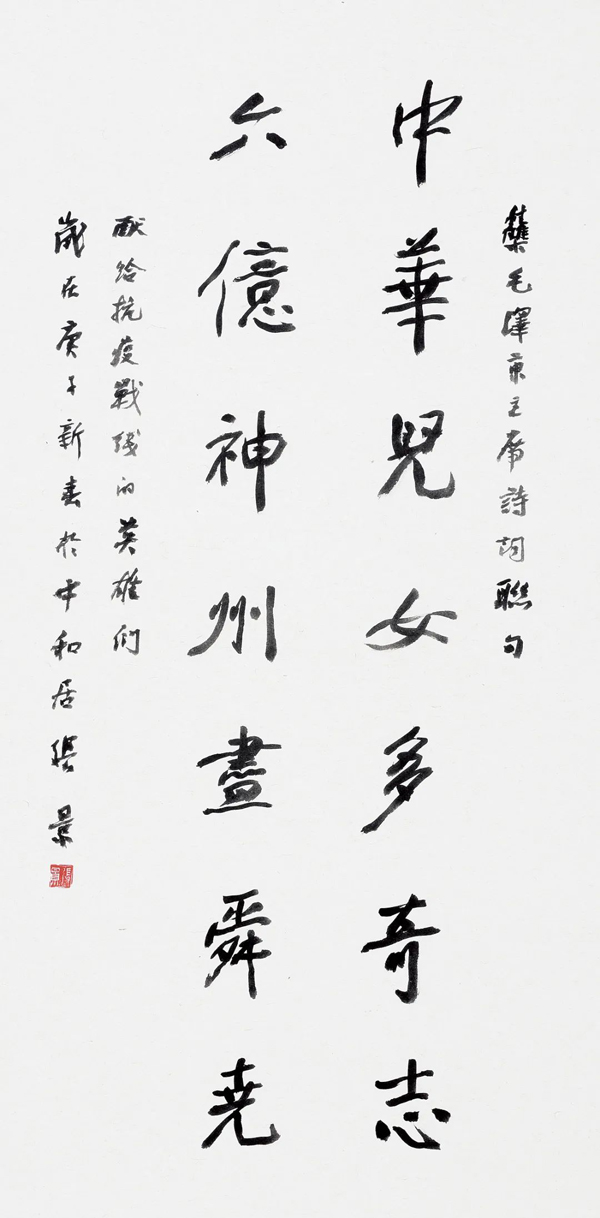 集毛澤東主席詩詞聯句
中華兒女多奇志
六億神州盡舜堯
獻給抗疫戰线的英雄们
歲在庚子新春於中和居張景